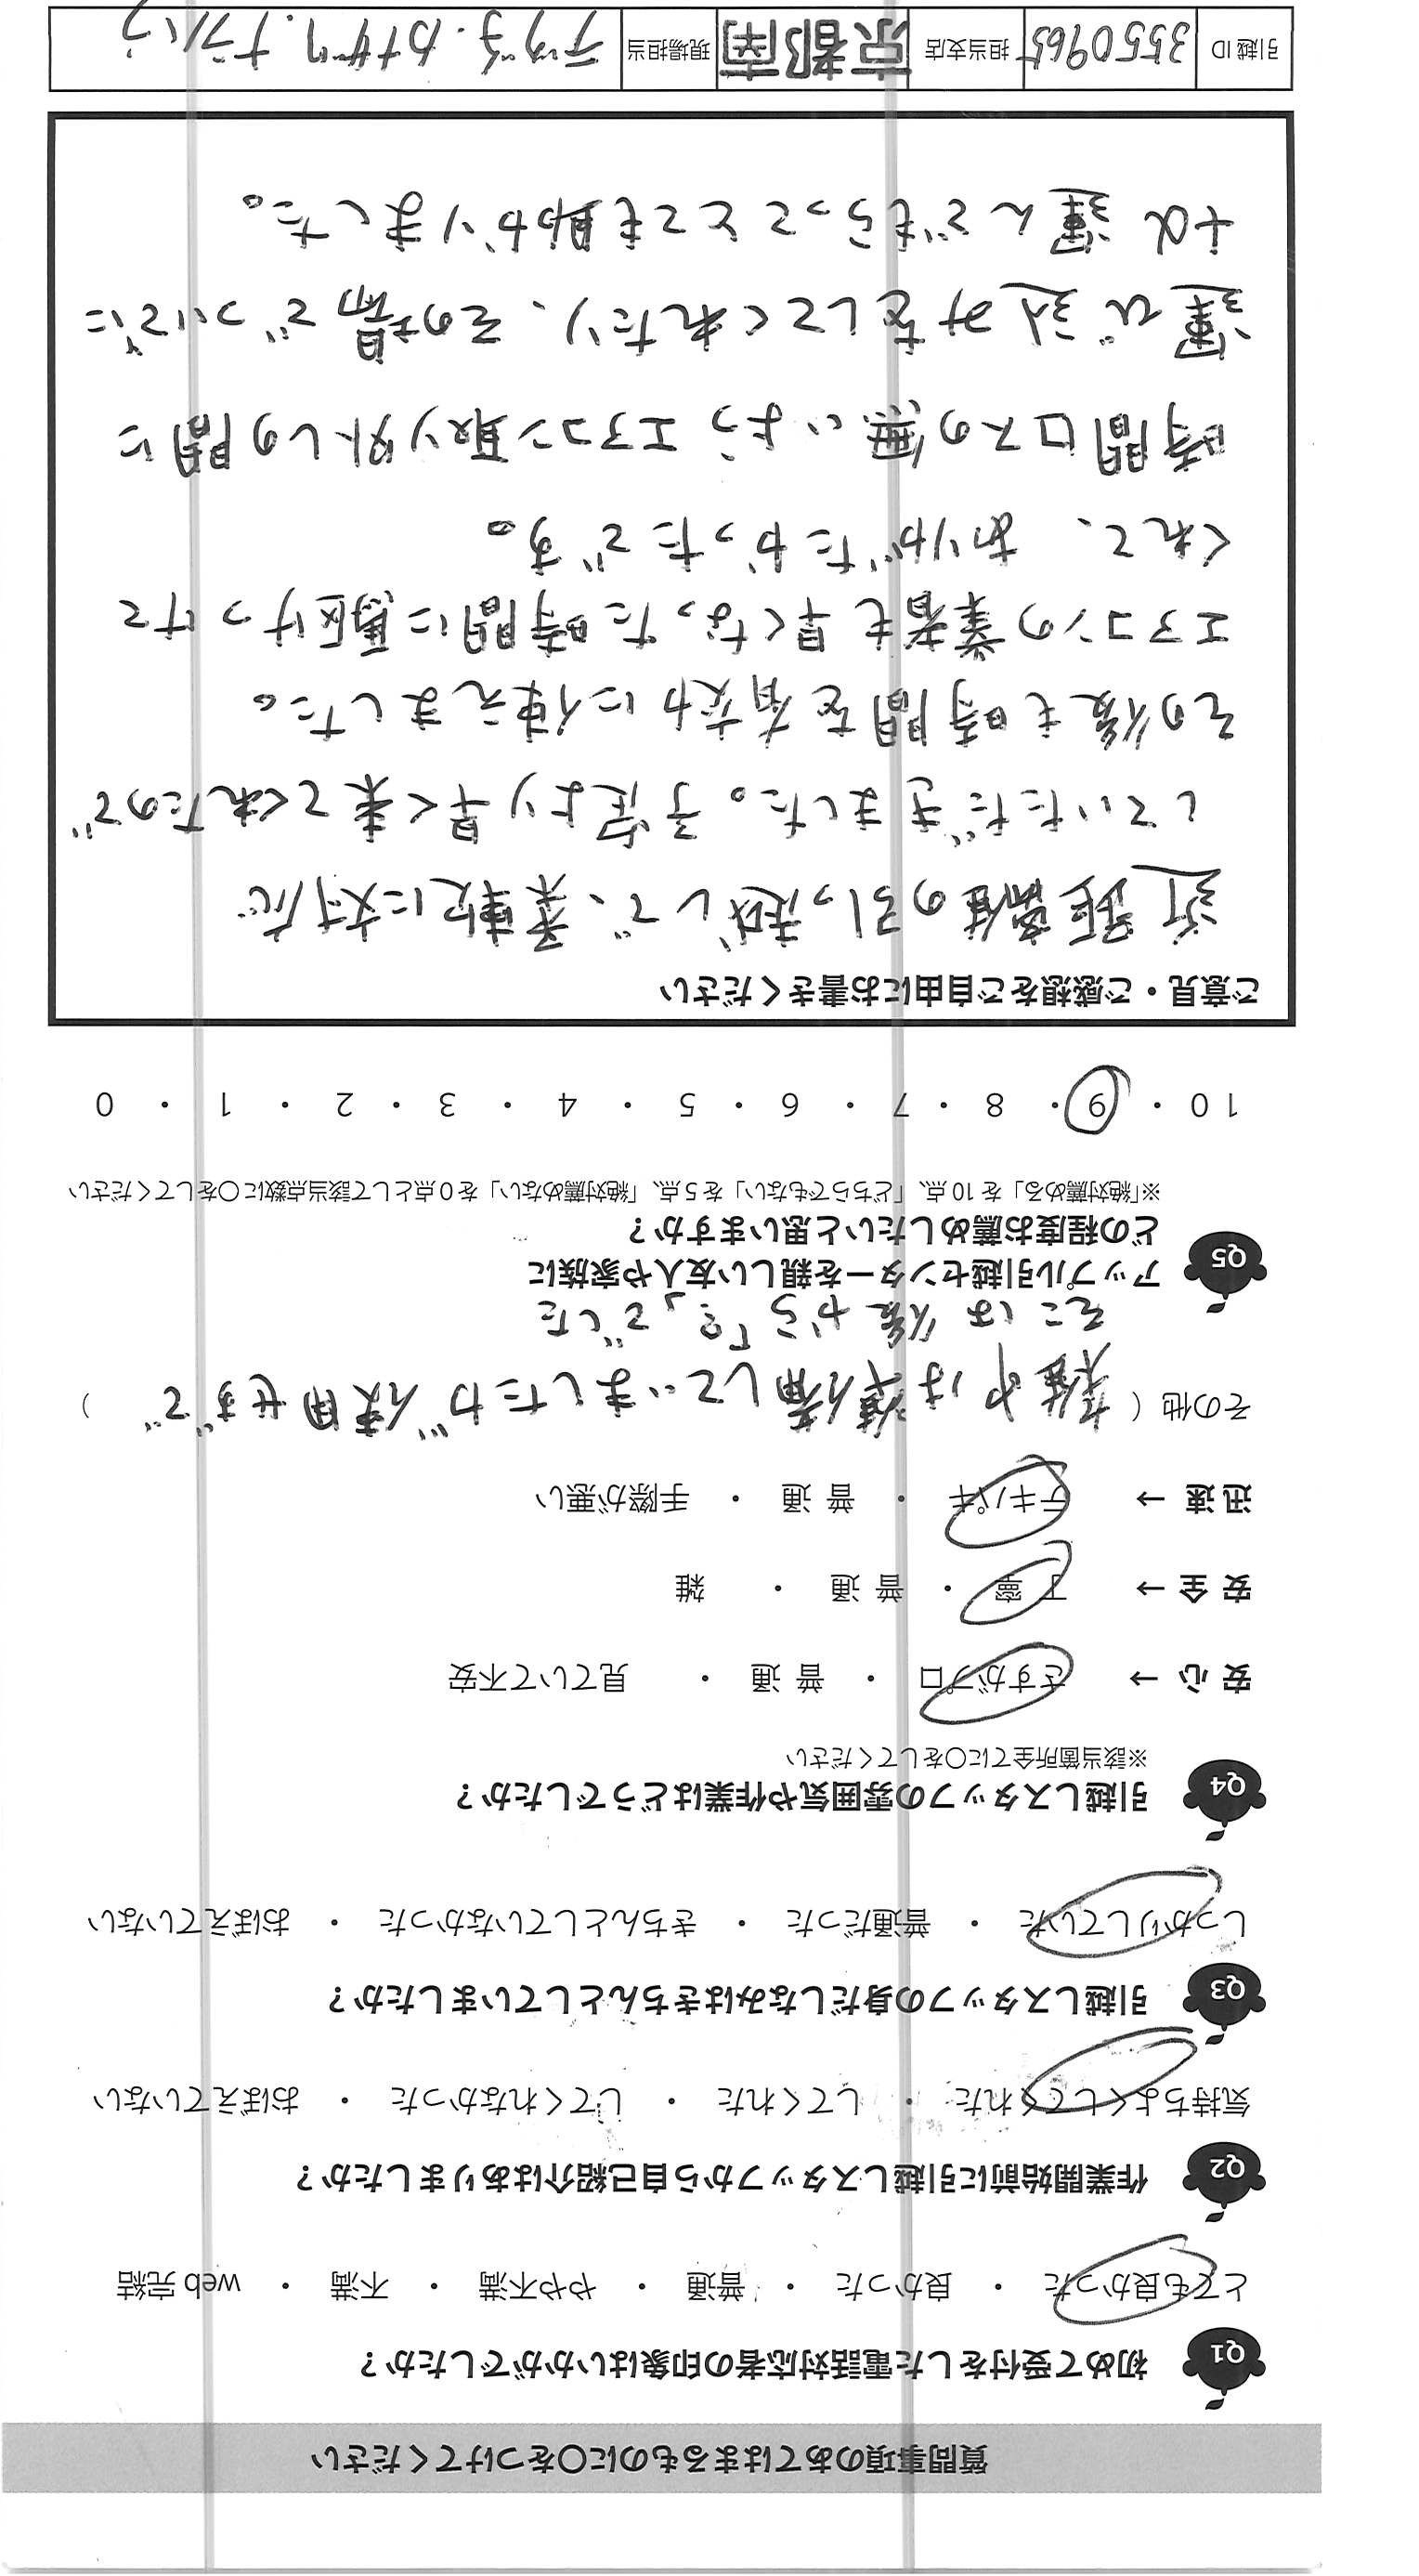 質問事項のあてはまるものに〇をつけてください
Q1 初めて受付をした電話対応者の印象はいかがでしたか?
とても良かった ・ 良かった ・ 普通 ・ やや不満 ・ 不満 ・ web完結
Q2 作業開始前に引越しスタッフから自己紹介はありましたか?
気持ちよくしてくれた ・ してくれた ・ してくれなかった ・ おぼえていない
Q3 引越しスタッフの身だしなみはきちんとしていましたか?
しっかりしていた ・ 普通だった ・ きちんとしていなかった ・ おぼえていない
Q4 引越しスタッフの雰囲気や作業はどうでしたか?
※該当箇所全てに〇をしてください
安心 → さすがプロ ・ 普通 ・ 見ていて不安
安全 → 丁寧 ・ 普通 ・ 雑
迅速 → テキパキ ・ 普通 ・ 手際が悪い
その他( 準備していましたが使用せずで )
そこは後から「?」でした
Q5 アップル引越センターを親しい友人や家族に
どの程度お薦めしたいと思いますか?
※「絶対薦める」を10点、「どちらでもない」を5点、「絶対薦めない」を0点として該当点数に〇をしてください
10 ・ 9 ・ 8 ・ 7 ・ 6 ・ 5 ・ 4 ・ 3 ・ 2 ・ 1 ・ 0
ご意見・ご感想をご自由にお書きください
近距離の引っ越しで、柔軟に対応
していただきました。予定より早く来てくれたので
その後も時間を有効に使えました。
エアコンの業者も早くなった時間に駆けつけて
くれて、ありがたかったです。
時間ロスの無いよう エアコン取り外しの間に
運び込みをしてくれたり、その場でついでに
+α運んでもらってとても助かりました。
引越ID 3550965 担当支店 京都南 現場担当